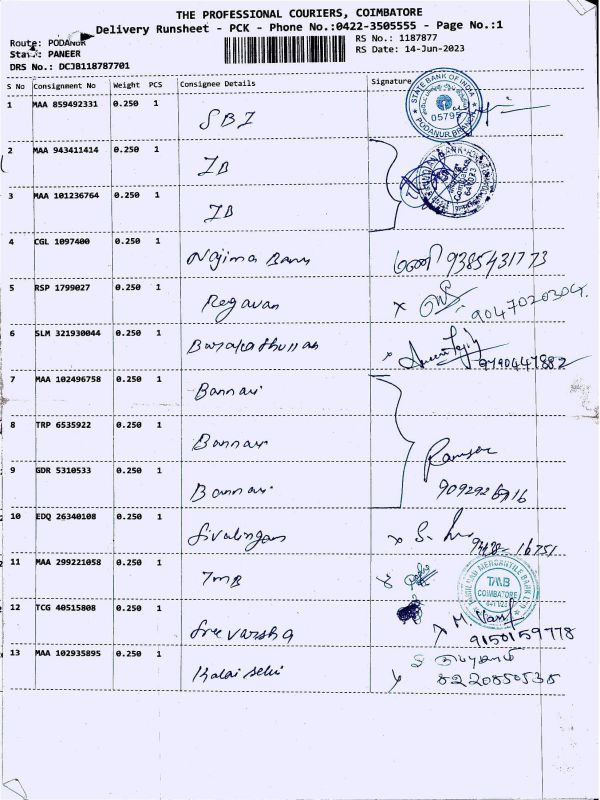 THE PROFESSIONAL COURIERS, COIMBATORE
Delivery Runsheet - PCK - Phone No.:0422-3505555 - Page No.:1
Route: PODANUR RS No.: 1187877
PANEER RS Date: 14-Jun-2023
DRS No.: DCJB118787701
S No Consignment No Weight PCS Consignee Details Signature
STATE BANK OF INDIA
05795
PODANUR BRANCH
1 MAA 859492331 0.250 1 SBI
2 MAA 943411414 0.250 1 IB
3 MAA 101236764 0.250 1 IB
4 CGL 1097400 0.250 1 Najima Banu 9385431773
5 RSP 1799027 0.250 1 Regavan 9047020304
6 SLM 321930044 0.250 1
7 MAA 102496758 0.250 1 Bannari
8 TRP 6535922 0.250 1 Bannari
9 GDR 5310533 0.250 1 Bannari
10 EDQ 26340108 0.250 1 Sivalingam 16751
11 MAA 299221058 0.250 1 TMB
TAMILNAD MERCANTILE BANK LTD
TMB
COIMBATORE
12 TCG 40515808 0.250 1 Sree varsha 9150159778
13 MAA 102935895 0.250 1 Kalai selvi 8220850535